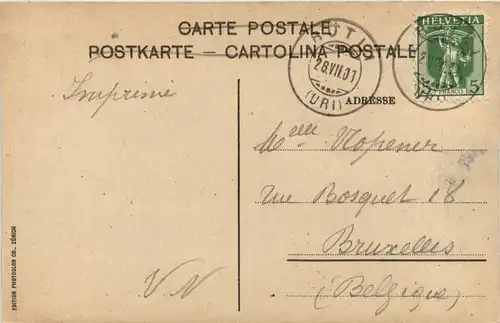 CARTE POSTALE
POSTKARTE – CARTOLINA POSTALE
28.VII.01
(URI)
HELVETIA
FRANCO
5
ADRESSE
Imprimé
Melle
rue Bosquet 18
Bruxelles
(Belgique)
V N
EDITION PHOTOGLOB CO., ZÜRICH